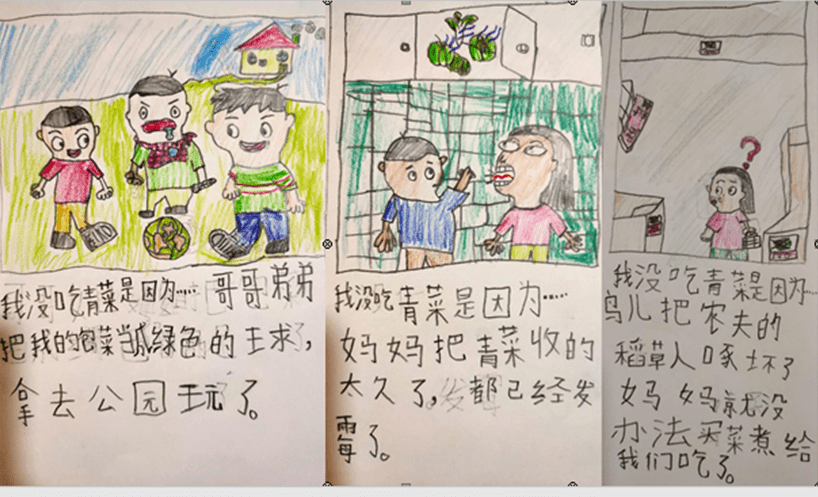 我没吃青菜是因为…… 哥哥弟弟
把我的包菜当成绿色的球,
拿去公园玩了。
我没吃青菜是因为……
妈妈把青菜收的
太久了,都已经发
霉了。
我没吃青菜是因为…
鸟儿把农夫的
稻草人啄坏了
妈妈就没
办法买菜煮给
我们吃了。